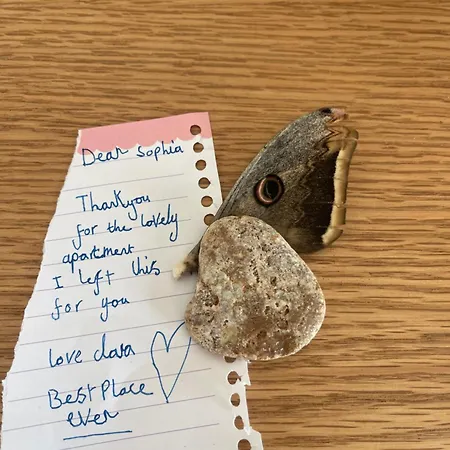 Dear Sophia
Thankyou
for the lovely
apartment
I left this
for you
love clara
Best Place
ever